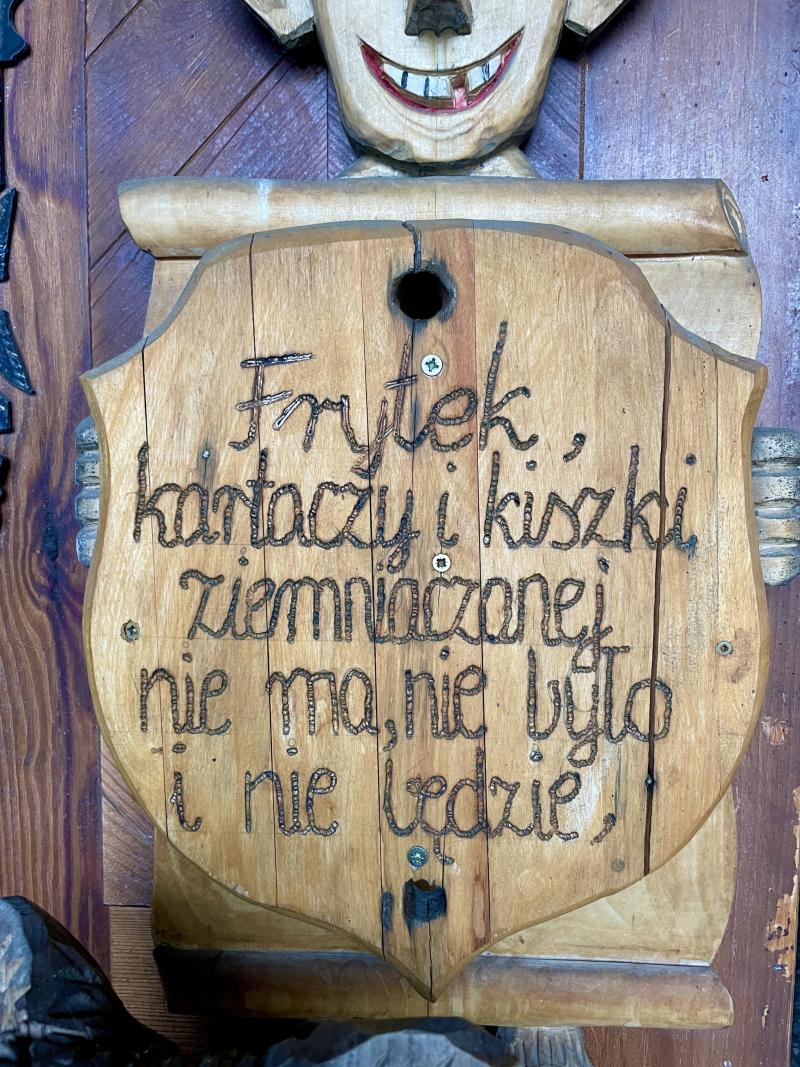 Frytek,
kartaczy i kiszki
ziemniaczanej
nie ma, nie było
i nie będzie,